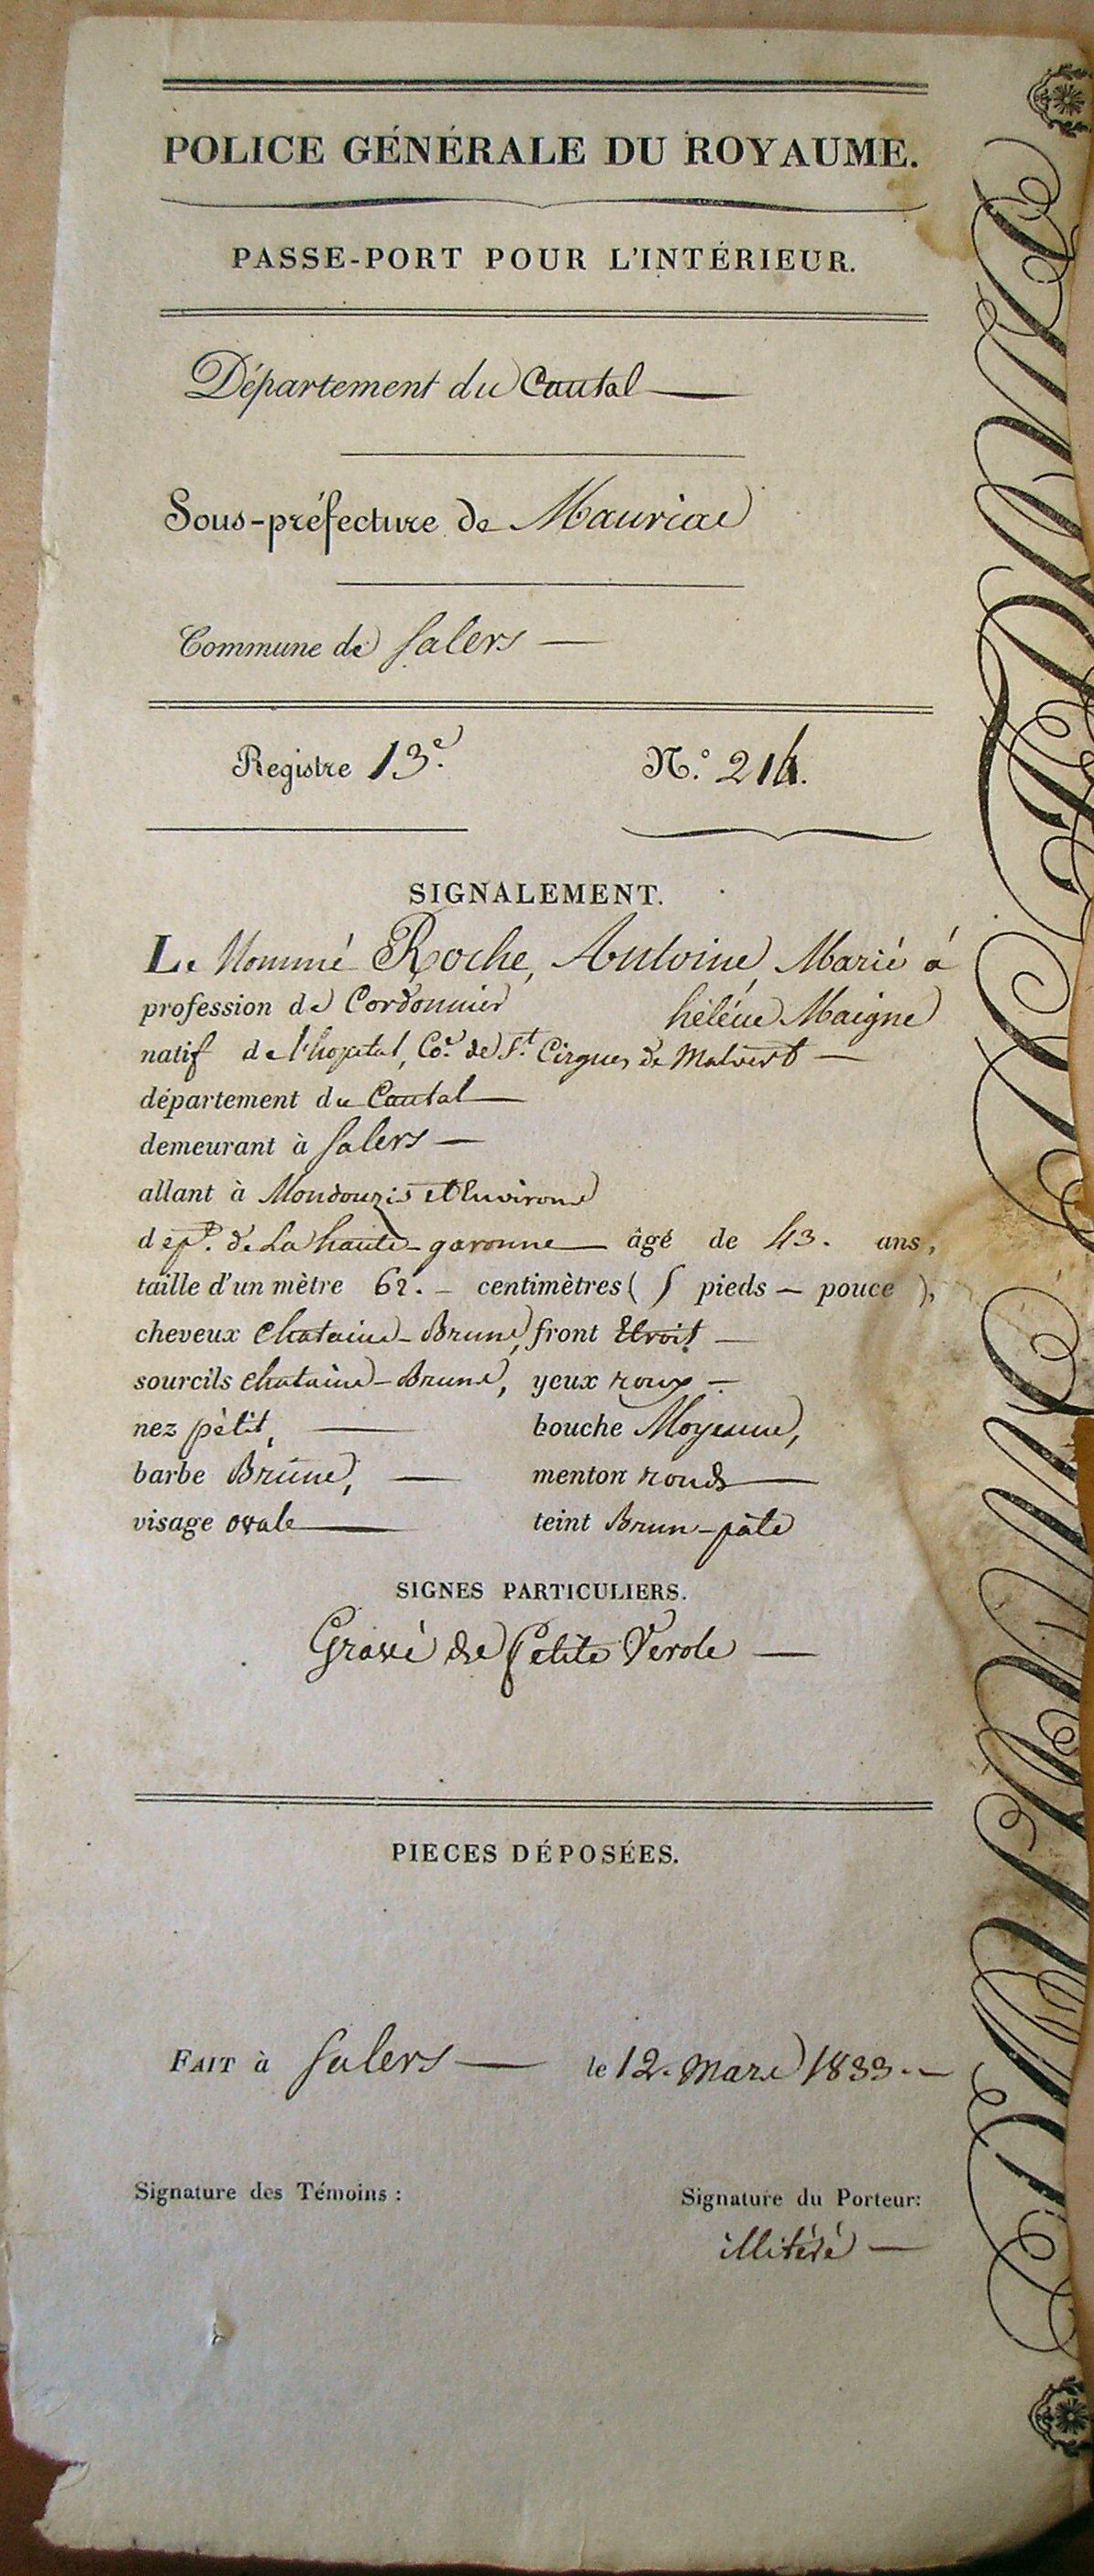 POLICE GÉNÉRALE DU ROYAUME.
PASSE-PORT POUR L'INTÉRIEUR.
Département du Cantal
Sous-préfecture de Mauriac
Commune de Salers
Registre 13.e N.° 214.
SIGNALEMENT.
Le Nommé Roche, Antoine, Marié à
profession de Cordonnier hélène Maigne
natif de l'hopital, Co.e de St. Cirgues de Malvert
département du Cantal
demeurant à Salers
allant à Mondouzis et Environs
dept. de La haute-garonne âgé de 43. ans,
taille d'un mètre 62. centimètres (5 pieds – pouce ),
cheveux Chatains-Bruns, front Etroit
sourcils chatains-Bruns, yeux roux
nez pétit, bouche Moyenne,
barbe Brune, menton rond
visage ovale teint Brun-pâle
SIGNES PARTICULIERS.
Gravé de Petite Verole
PIECES DÉPOSÉES.
FAIT à Salers le 12. Mars 1833.
Signature des Témoins : Signature du Porteur:
illitéré